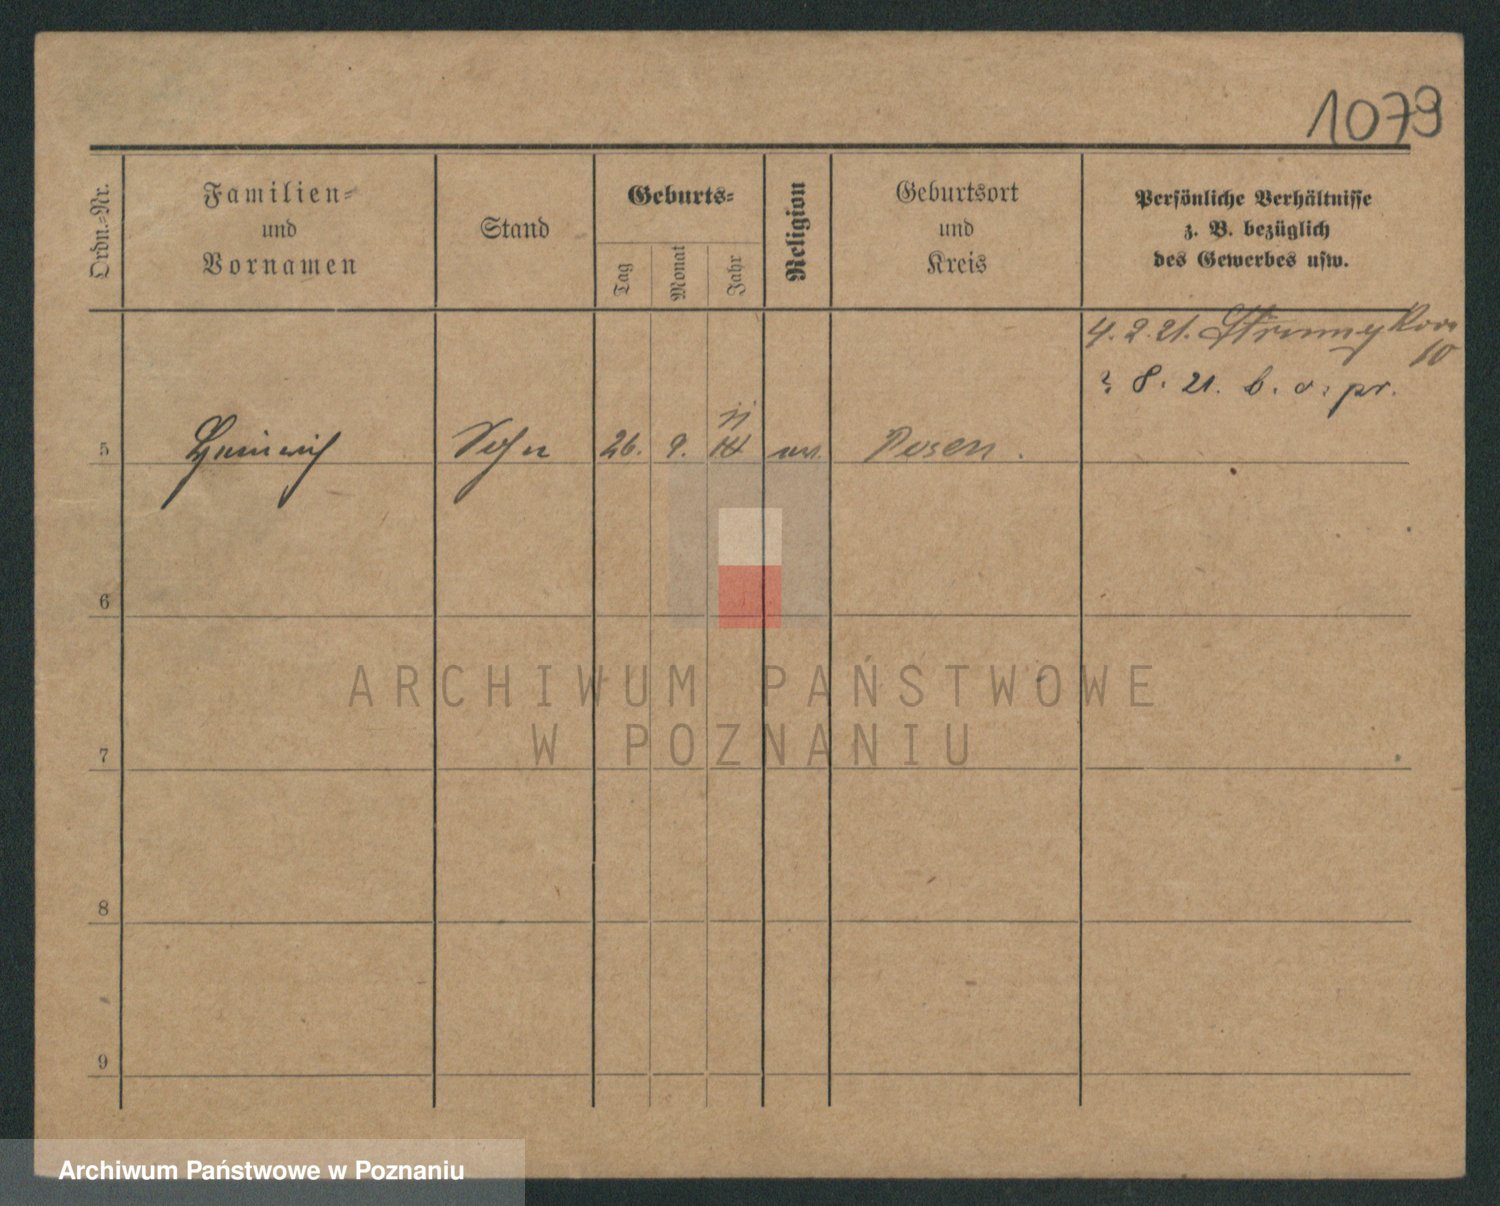 1079
Ordn.-Nr.
Familien-
und
Vornamen
Stand
Geburts-
Tag
Monat
Jahr
Religion
Geburtsort
und
Kreis
Persönliche Verhältnisse
z. B. bezüglich
des Gewerbes usw.
4. 2. 21.
10
8. 21. b. o. pr.
5 Heinrich Sohn 26. 9. Posen.
6
ARCHIWUM PAŃSTWOWE
W POZNANIU
7
8
9
Archiwum Państwowe w Poznaniu